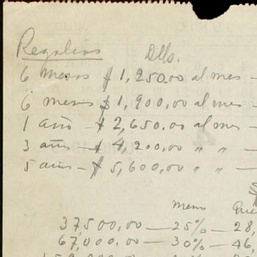 Regalias Dlls.
6 meses $1,250.00 al mes –
6 meses $1,900,00 al mes –
1 año – $2,650.00 al mes –
3 año – $4,200,00 " " –
5 año – $5,600,00 " "
menos
37,500.00 — 25% — 28,
67,000.00 — 30% — 46,